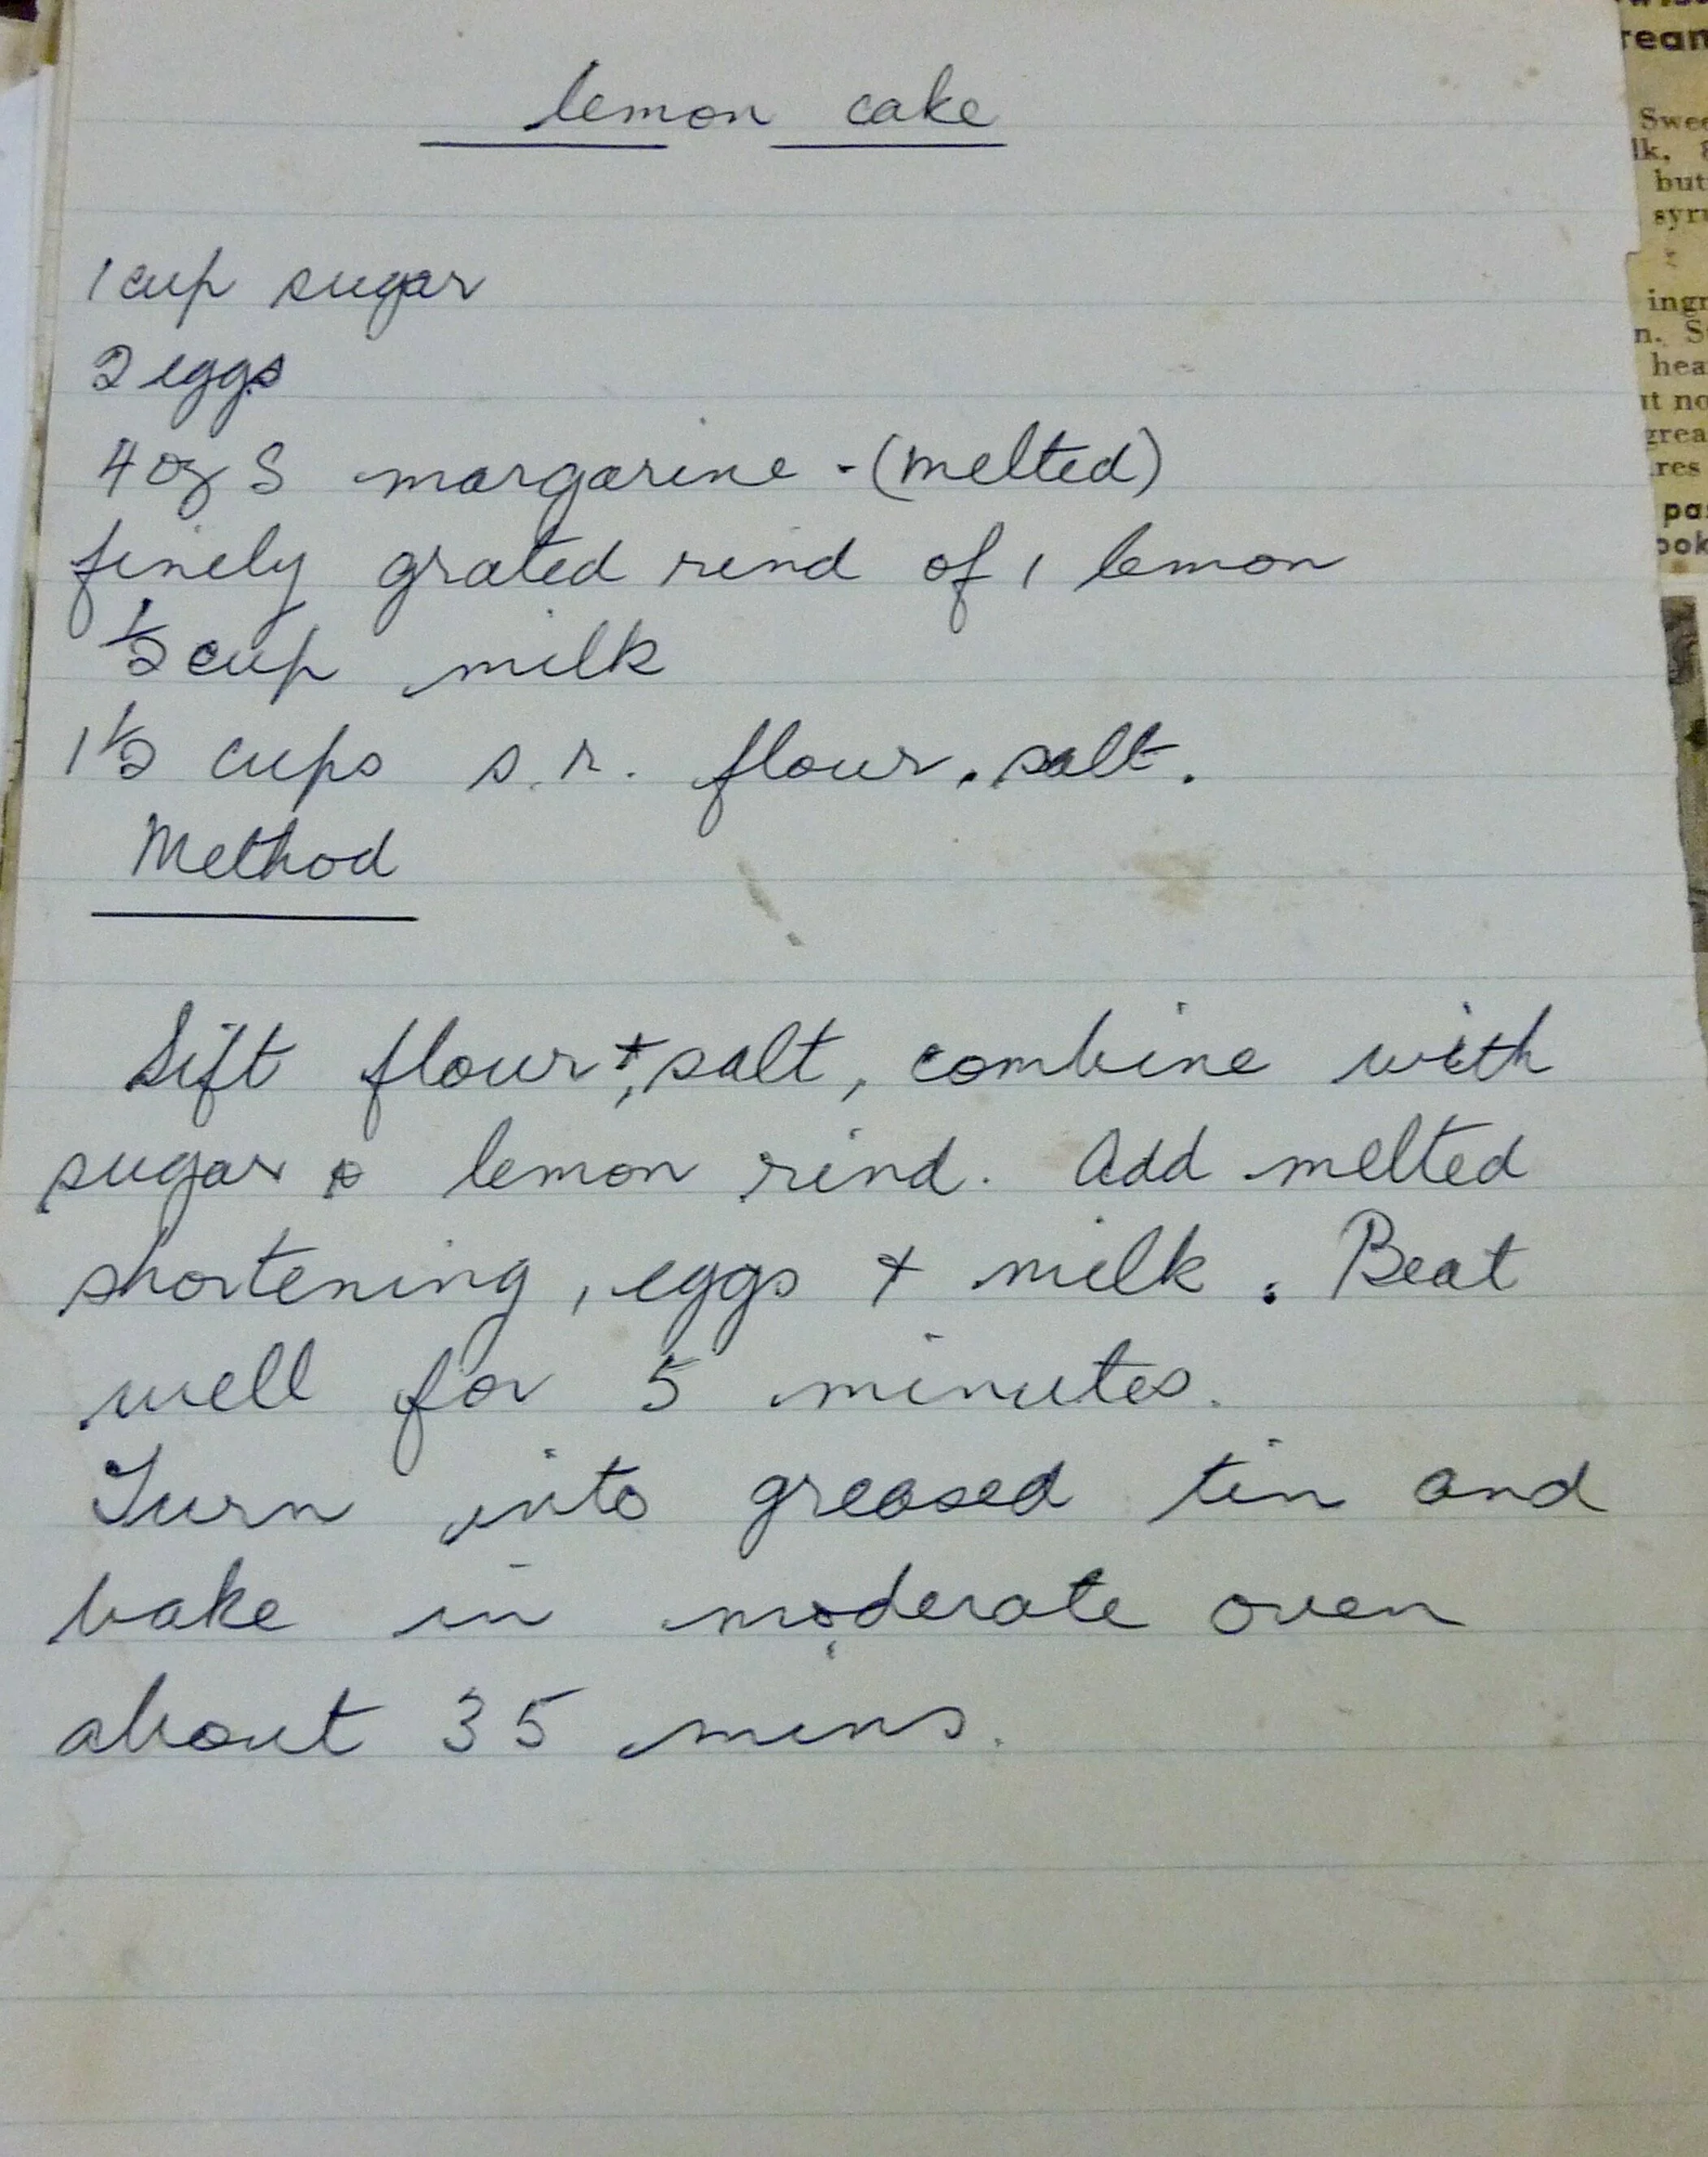 lemon cake
1 cup sugar
2 eggs
4 oz S margarine - (melted)
finely grated rind of 1 lemon
1/2 cup milk
1 1/2 cups s.r. flour. salt.
Method
Sift flour +, salt, combine with
sugar & lemon rind. Add melted
shortening, eggs + milk. Beat
well for 5 minutes.
Turn into greased tin and
bake in moderate oven
about 35 mins.
rean
Swee
lk.
but
syru
ingr
n. S
hea
ut no
grea
res
pas
ook